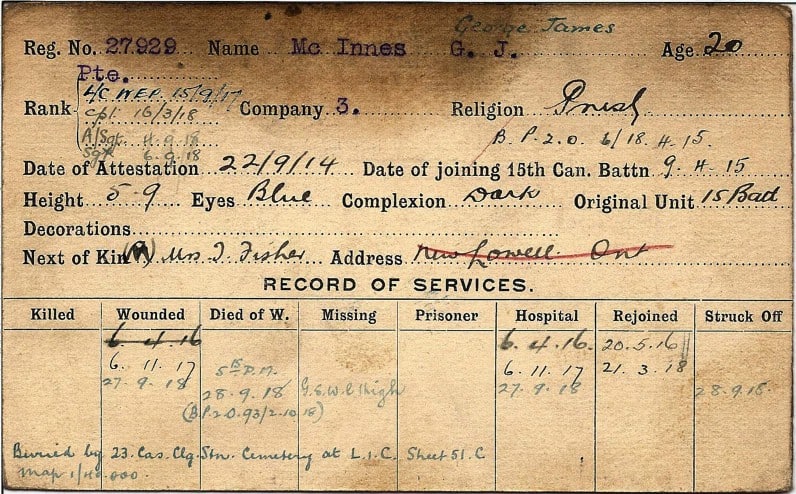 George James
Reg. No. 27929 Name Mc Innes G. J. Age 20
Pte.
L/C W.E.P. 15/9/17
Rank Cpl. 16/3/18 Company 3. Religion Presb
A/Sgt. 4.9.18 B. P. 2. O. 6/18.4.15.
Sgt 6.9.18
Date of Attestation 22/9/14 Date of joining 15th Can. Battn 9.4.15
Height 5-9 Eyes Blue Complexion Dark Original Unit 15 Batt
Decorations
Next of Kin (M) Mrs J. Fisher Address New Lowell Ont
RECORD OF SERVICES.
Killed Wounded Died of W. Missing Prisoner Hospital Rejoined Struck Off
6.4.16 6.4.16. 20.5.16
6.11.17 5 P.M. 6.11.17 21.3.18
27.9.18 28.9.18 G.S.W. L thigh 27.9.18 28.9.18
(B.P.2.O.93/2.10.18)
Buried by 23.Cas.Clg.Stn. Cemetery at L.I.C. Sheet 51.C
Map 1/40.000.